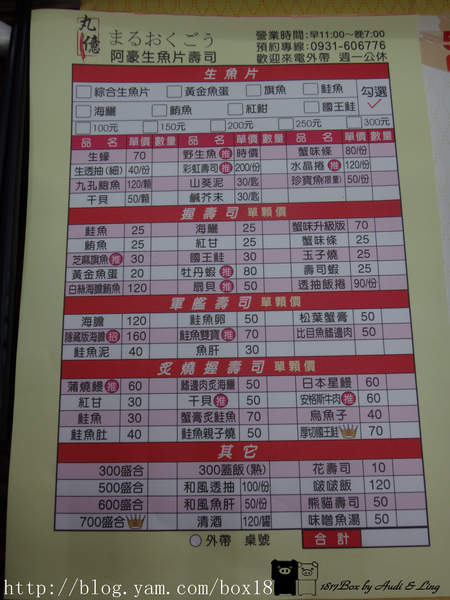 丸億
まるおくごう
阿豪生魚片壽司
營業時間:早11:00~晚7:00
預約專線:0931-606776
歡迎來電外帶 週一公休
生魚片
綜合生魚片 黃金魚蛋 旗魚 鮭魚 勾選
海鱺 鮪魚 紅魽 國王鮭
100元 150元 200元 250元 300元
品名 單價 數量 品名 單價 數量 品名 單價 數量
生蠔 70 野生魚 推 時價 蟹味條 80/份
生透抽(細) 40/份 彩虹壽司 推 200/份 水晶捲 推 120/份
九孔鮑魚 120/顆 山葵泥 30/匙 珍寶魚(限量) 50/份
干貝 50/顆 鹹芥末 30/匙
握壽司 單顆價
鮭魚 25 海鱺 25 蟹味升級版 70
鮪魚 25 紅甘 25 蟹味條 25
芝麻旗魚 推 30 國王鮭 30 玉子燒 25
黃金魚蛋 20 牡丹蝦 推 80 壽司蝦 25
白絲海鹽鮪魚 120 扇貝 推 50 透抽飯捲 90/份
軍艦壽司 單顆價
海膽 120 鮭魚卵 50 松葉蟹膏 50
隱藏版海膽 招 160 鮭魚雙寶 推 70 比目魚鰭邊肉 50
鮭魚泥 40 魚肝 30
炙燒握壽司 單顆價
蒲燒鰻 推 60 鰭邊肉炙海鱺 50 日本星鰻 60
紅甘 30 干貝 推 50 安格斯牛肉 推 60
鮭魚 30 蟹膏炙鮭魚 70 烏魚子 40
鮭魚肚 40 鮭魚親子燒 50 厚切國王鮭 70
其它
300盛合 300蓋飯(熟) 花壽司 10
500盛合 和風透抽 100/份 啵啵飯 120
600盛合 和風魚肝 50/份 熊貓壽司 50
700盛合 清酒 120/罐 味噌魚湯 50
外帶 桌號 合計
1817Box by Audi & Ling
http://blog.yam.com/box18